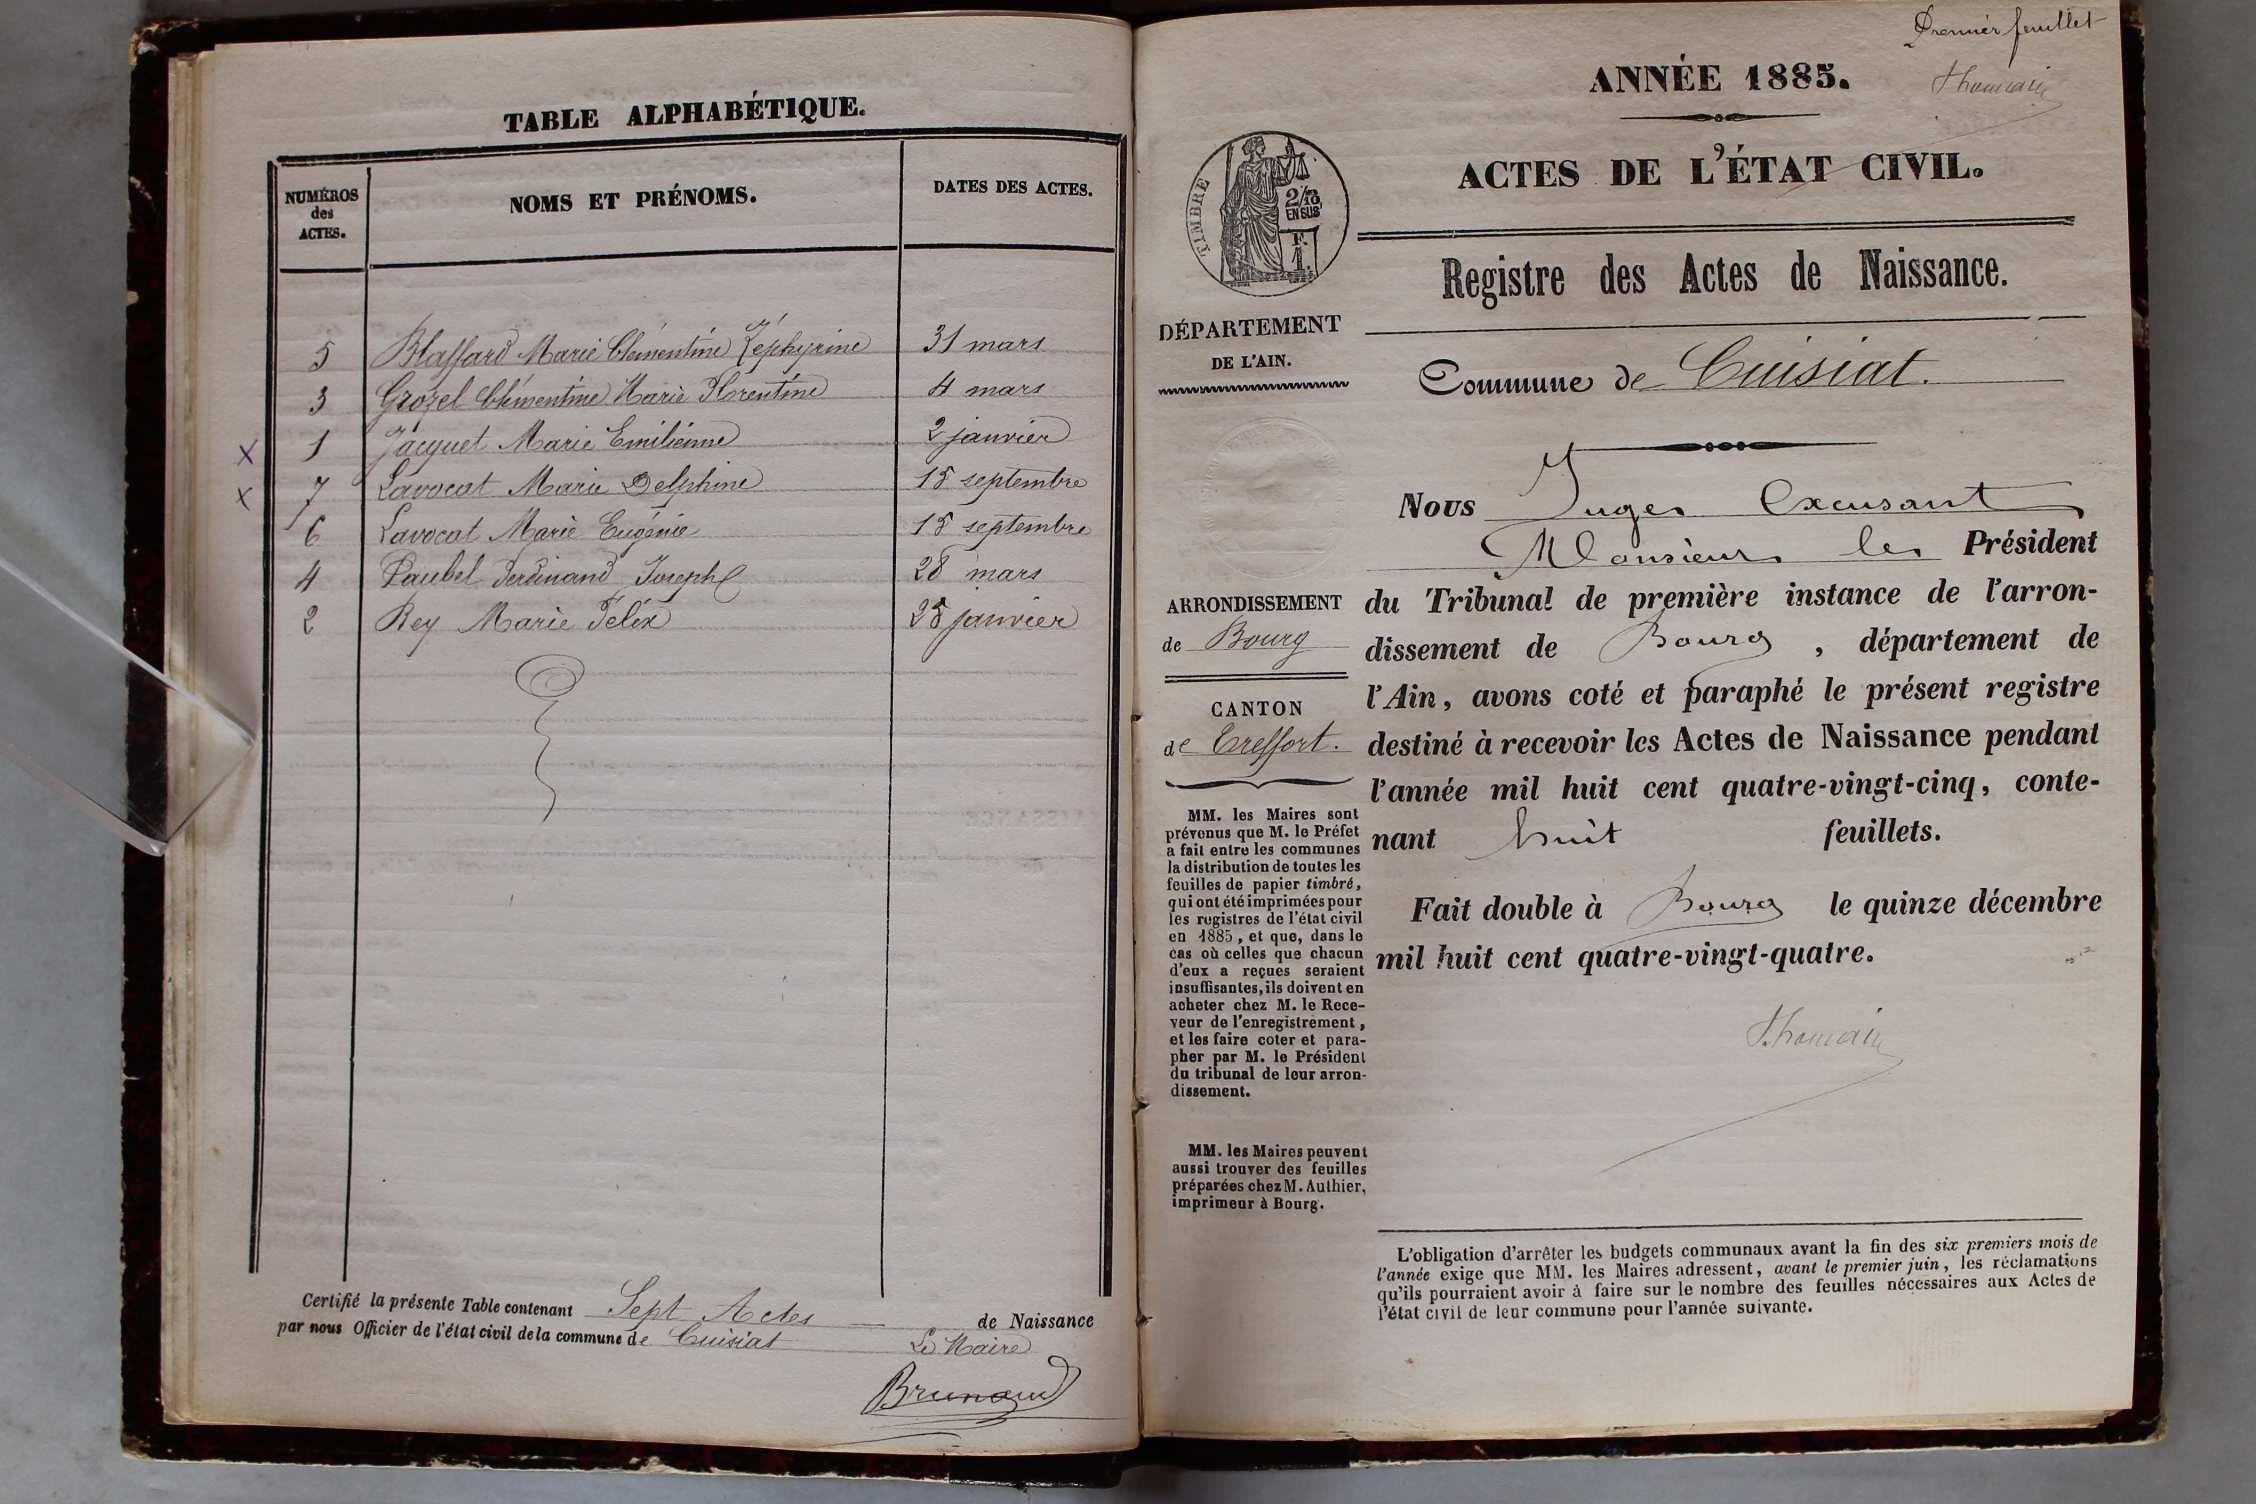 TABLE ALPHABÉTIQUE.
NUMÉROS
des
ACTES.
NOMS ET PRÉNOMS.
DATES DES ACTES.
5 Blaffard Marie Clémentine Zéphyrine 31 mars
3 Grozel Clémentine Marie Florentine 4 mars
x 1 Jacquet Marie Emilienne 2 janvier
x 7 Lavocat Marie Delphine 15 septembre
6 Lavocat Marie Eugénie 15 septembre
4 Paubel Ferdinand Joseph 28 mars
2 Rey Marie Félix 25 janvier
Certifié la présente Table contenant Sept Actes de Naissance
par nous Officier de l'état civil de la commune de Cuisiat Le Maire
Brunaud
Premier feuillet
ANNÉE 1885.
ACTES DE L'ÉTAT CIVIL.
TIMBRE
2/10
EN SUS
F.
1.
Registre des Actes de Naissance.
DÉPARTEMENT
DE L'AIN.
Commune de Cuisiat.
Nous Juge Excusant
Monsieur le Président
du Tribunal de première instance de l'arron-
dissement de Bourg, département de
l'Ain, avons coté et paraphé le présent registre
destiné à recevoir les Actes de Naissance pendant
l'année mil huit cent quatre-vingt-cinq, conte-
nant huit feuillets.
Fait double à Bourg le quinze décembre
mil huit cent quatre-vingt-quatre.
ARRONDISSEMENT
de Bourg
CANTON
de Treffort.
MM. les Maires sont
prévenus que M. le Préfet
a fait entre les communes
la distribution de toutes les
feuilles de papier timbré,
qui ont été imprimées pour
les registres de l'état civil
en 1885, et que, dans le
cas où celles que chacun
d'eux a reçues seraient
insuffisantes, ils doivent en
acheter chez M. le Rece-
veur de l'enregistrement,
et les faire coter et para-
pher par M. le Président
du tribunal de leur arron-
dissement.
MM. les Maires peuvent
aussi trouver des feuilles
préparées chez M. Authier,
imprimeur à Bourg.
L'obligation d'arrêter les budgets communaux avant la fin des six premiers mois de
l'année exige que MM. les Maires adressent, avant le premier juin, les réclamations
qu'ils pourraient avoir à faire sur le nombre des feuilles nécessaires aux Actes de
l'état civil de leur commune pour l'année suivante.